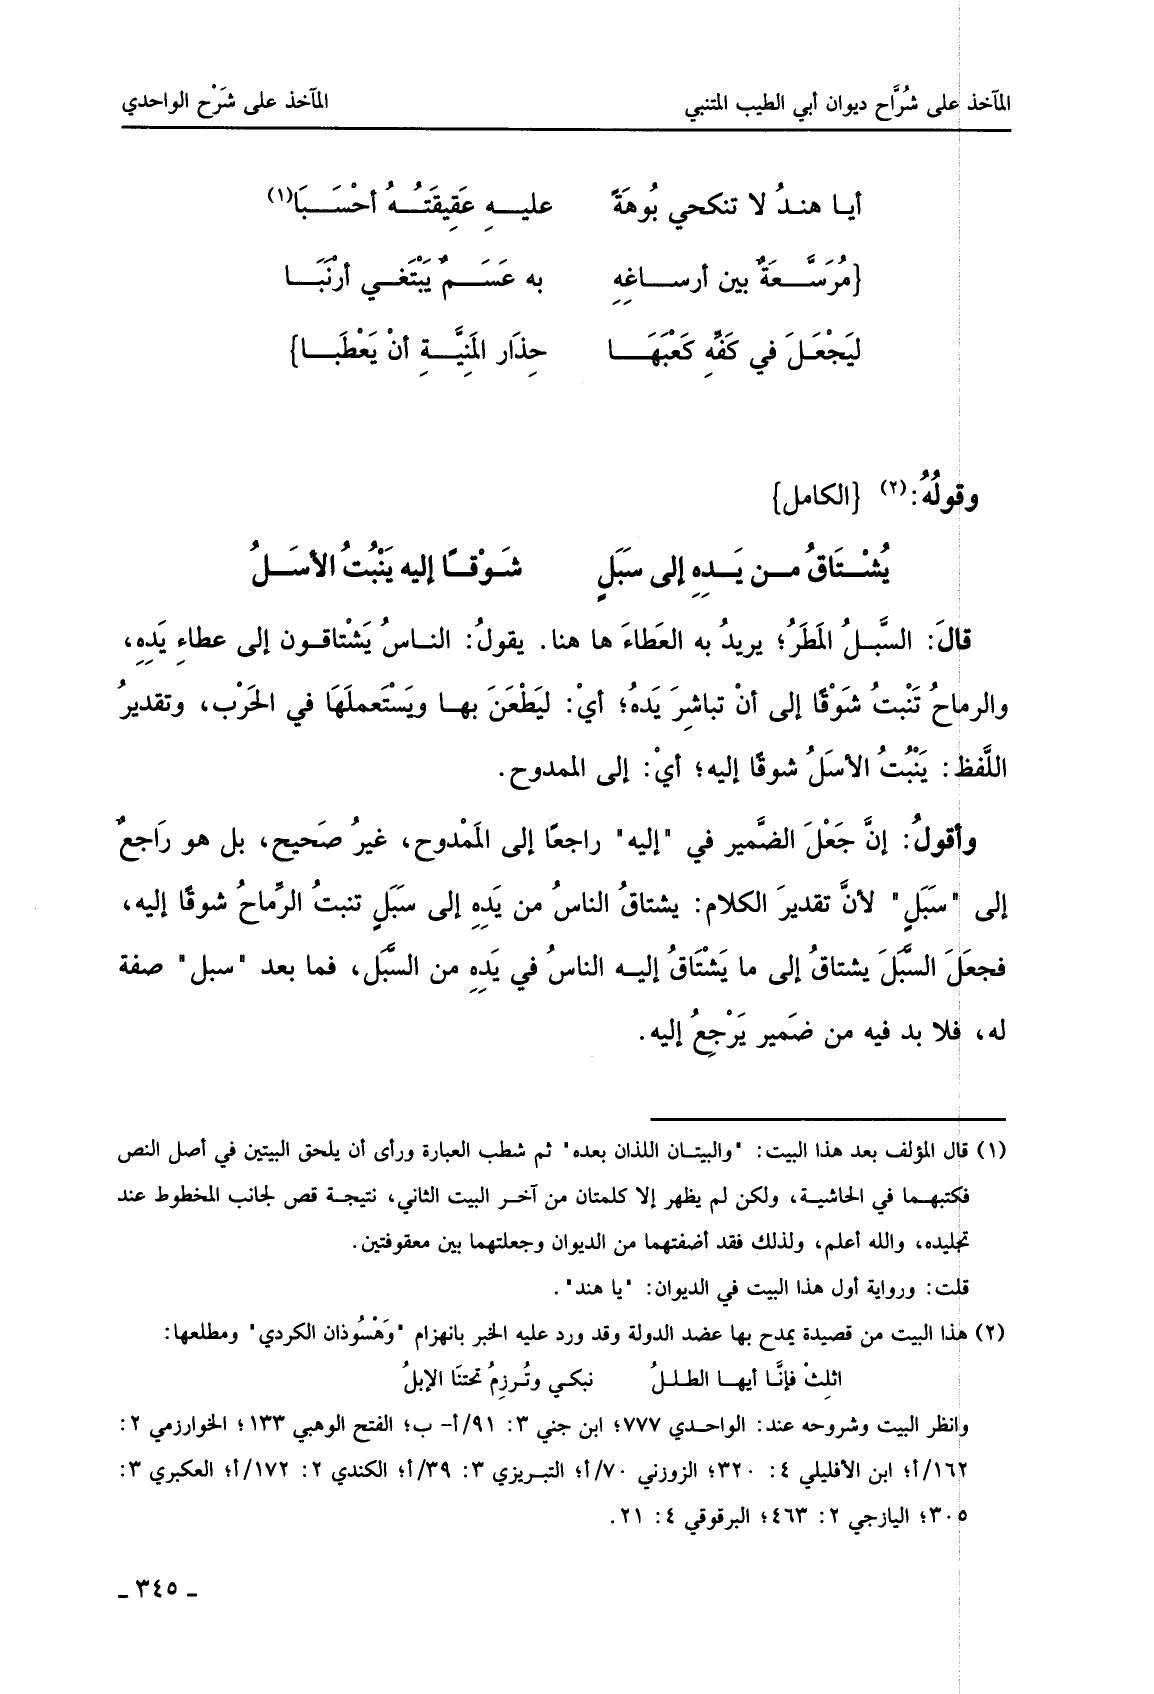 المآخذ على شُرَّاح ديوان أبي الطيب المتنبي المآخذ على شَرْح الواحدي
أيا هندُ لا تنكحي بُوهَةً عليهِ عَقِيقَتُهُ أحْسَبَا(١)
{مُرَسَّعَةٌ بين أرساغِهِ به عَسَمٌ يَبْتَغي أرْنَبَا
ليَجْعَلَ في كَفِّهِ كَعْبَهَا حِذَار المَنِيَّةِ أنْ يَعْطَبَا}
وقولُهُ:(٢) {الكامل}
يُشْتَاقُ من يَدِهِ إلى سَبَلٍ شَوْقًا إليه يَنْبُتُ الأسَلُ
قالَ: السَّبَلُ المَطَرُ؛ يريدُ به العَطَاءَ ها هنا. يقولُ: الناسُ يَشْتاقون إلى عطاءِ يَدِهِ،
والرماحُ تَنْبتُ شَوْقًا إلى أنْ تباشِرَ يَدهُ؛ أيْ: ليَطْعَنَ بها ويَسْتَعملَهَا في الحَرْب، وتقديرُ
اللَّفظ: يَنْبُتُ الأسَلُ شوقًا إليه؛ أيْ: إلى الممدوح.
وأقولُ: إنَّ جَعْلَ الضَّمير في "إليه" راجعًا إلى المَمْدوح، غيرُ صَحيح، بل هو رَاجعٌ
إلى "سَبَلٍ" لأنَّ تقديرَ الكلام: يشتاقُ الناسُ من يَدِهِ إلى سَبَلٍ تنبتُ الرِّماحُ شوقًا إليه،
فجعَلَ السَّبَلَ يشتاقُ إلى ما يَشْتَاقُ إليه الناسُ في يَدِهِ من السَّبَل، فما بعد "سبل" صفة
له، فلا بد فيه من ضَمير يَرْجِعُ إليه.
(١) قال المؤلف بعد هذا البيت: "والبيتان اللذان بعده" ثم شطب العبارة ورأى أن يلحق البيتين في أصل النص
فكتبهما في الحاشية، ولكن لم يظهر إلا كلمتان من آخر البيت الثاني، نتيجة قص لجانب المخطوط عند
تجليده، والله أعلم، ولذلك فقد أضفتهما من الديوان وجعلتهما بين معقوفتين.
قلت: ورواية أول هذا البيت في الديوان: "يا هند".
(٢) هذا البيت من قصيدة يمدح بها عضد الدولة وقد ورد عليه الخبر بانهزام "وَهْسُوذان الكردي" ومطلعها:
اثلِثْ فإنَّا أيها الطللُ نبكي وتُرزِمُ تحتنَا الإبلُ
وانظر البيت وشروحه عند: الواحدي ٧٧٧؛ ابن جني ٣: ٩١/أ- ب؛ الفتح الوهبي ١٣٣؛ الخوارزمي ٢:
١٦٢/أ؛ ابن الأفليلي ٤: ٣٢٠؛ الزوزني ٧٠/أ؛ التبريزي ٣: ٣٩/أ؛ الكندي ٢: ١٧٢/أ؛ العكبري ٣:
٣٠٥؛ اليازجي ٢: ٤٦٣؛ البرقوقي ٤: ٢١.
ـ ٣٤٥ ـ